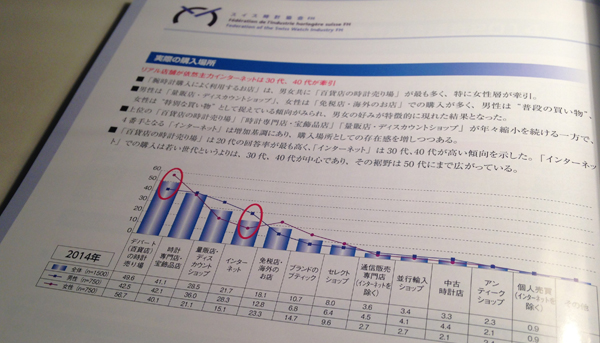 スイス時計協会FH
Fédération de l'industrie horlogère suisse FH
Federation of the Swiss Watch Industry FH
実際の購入場所
リアル店舗が依然主力インターネットは30代、40代が牽引
■「腕時計購入によく利用するお店」は、男女共に「百貨店の時計売り場」が最も多く、特に女性層が牽引。
■男性は「量販店・ディスカウントショップ」、女性は「免税店・海外のお店」での購入が多く、男性は“普段の買い物”、
女性は“特別な買い物”として捉えている傾向がみられ、男女の好みが特徴的に現れた結果となった。
■上位の「百貨店の時計売り場」「時計専門店・宝飾品店」「量販店・ディスカウントショップ」が年々縮小を続ける一方で、
4番手となる「インターネット」は増加基調にあり、購入場所としての存在感を増しつつある。
■「百貨店の時計売り場」は20代の回答率が最も高く、「インターネット」は30代、40代が高い傾向を示した。「インターネッ
ト」での購入は若い世代というよりは、30代、40代が中心であり、その裾野は50代にまで広がっている。
60
50
40
30
20
10
0
2014年
デパート(百貨店)の時計売り場
時計専門店・宝飾品店
量販店・ディスカウントショップ
インターネット
免税店・海外のお店
ブランドのブティック
セレクトショップ
通信販売専門店(インターネットを除く)
並行輸入ショップ
中古時計店
アンティークショップ
個人売買(インターネットを除く)
その他
全体 (n=1500) 49.6 41.1 28.5 21.7 18.1 10.7 8.0 3.6 3.4 3.3 2.3 0.9
男性 (n=750) 42.5 42.1 36.0 28.3 12.8 6.8 6.4 4.5 4.1 4.4 2.1 0.9
女性 (n=750) 56.7 40.1 21.1 15.1 23.3 14.7 9.6 2.7 2.7 2.1